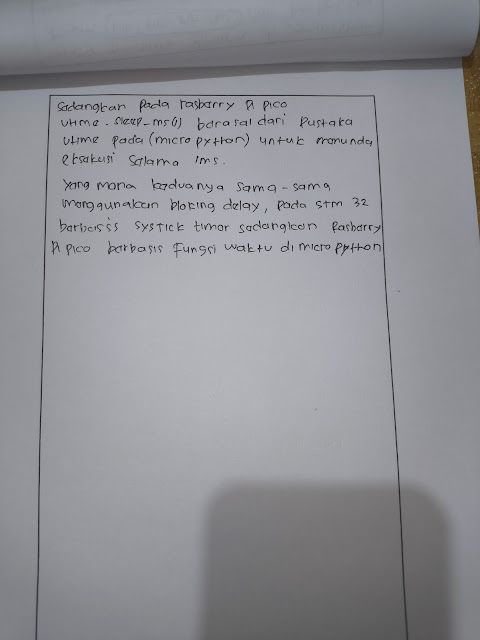 Sedangkan pada rasberry Pi pico
utime.sleep_ms(1) berasal dari Pustaka
utime pada (micropython) untuk menunda
eksekusi selama 1ms.
Yang mana keduanya sama-sama
menggunakan bloking delay, pada stm 32
berbasis systick timer sedangkan Rasberry
Pi pico berbasis fungsi waktu di micropython